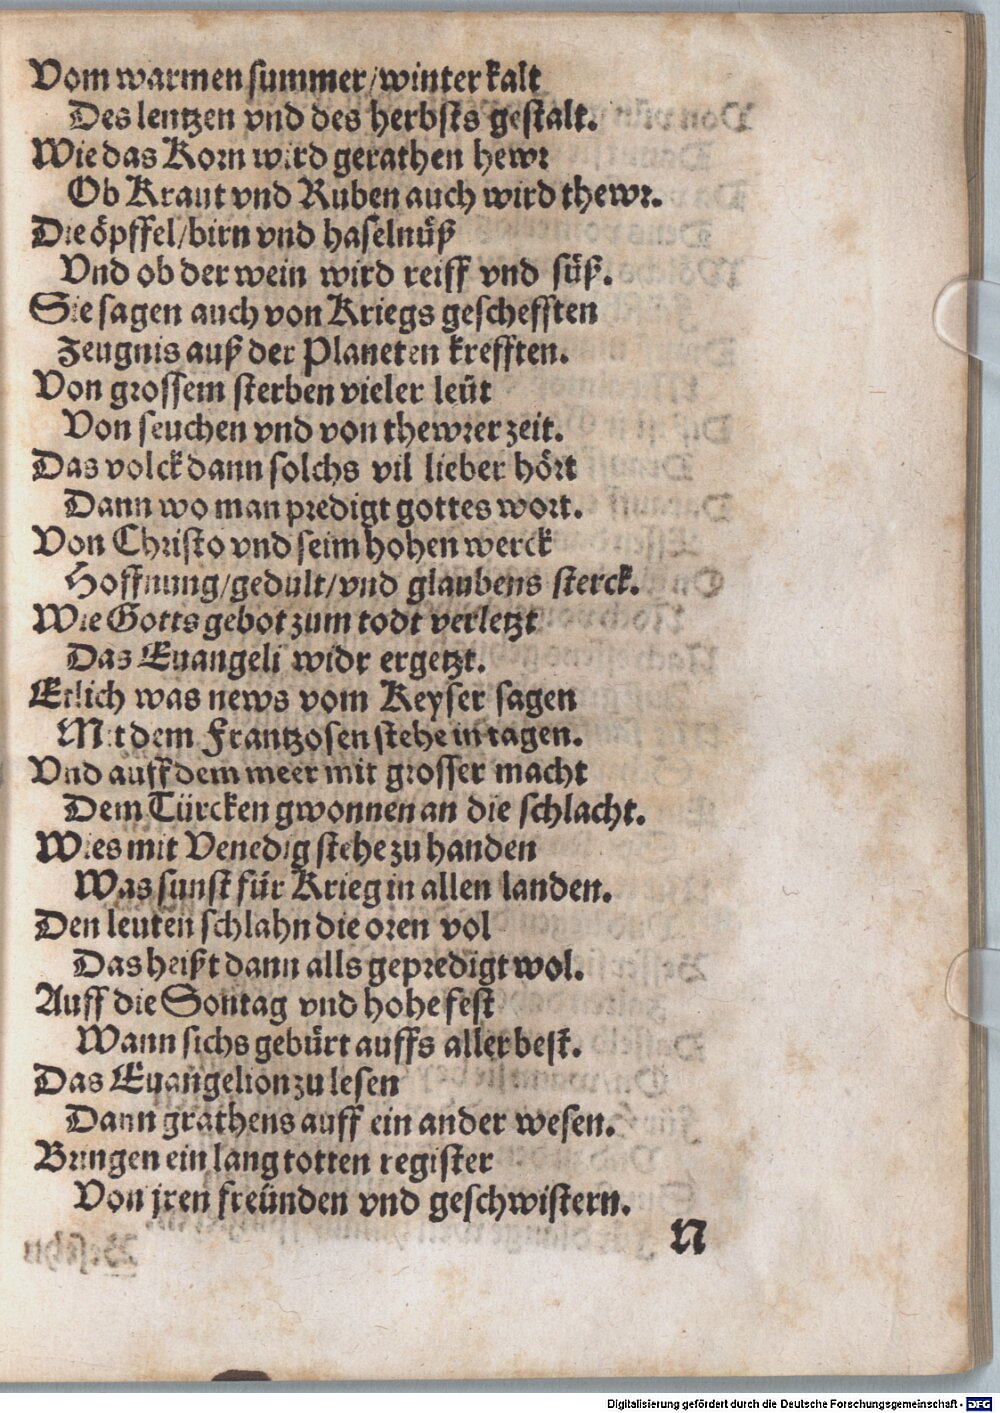 Vom warmen summer/winter kalt
Des lentzen vnd des herbsts gestalt.
Wie das Korn wird gerathen hewr
Ob Kraut vnd Ruben auch wird thewr.
Die öpffel/birn vnd haselnüß
Vnd ob der wein wird reiff vnd süß.
Sie sagen auch von Kriegs geschefften
Zeugnis auß der Planeten krefften.
Von grossem sterben vieler leüt
Von seuchen vnd von thewrer zeit.
Das volck dann solchs vil lieber hört
Dann wo man predigt gottes wort.
Von Christo vnd seim hohen werck
Hoffnung/gedult/vnd glaubens sterck.
Wie Gotts gebot zum todt verletzt
Das Euangeli widr ergetzt.
Etlich was news vom Keyser sagen
Mit dem Frantzosen stehe in tagen.
Vnd auff dem meer mit grosser macht
Dem Türcken gwonnen an die schlacht.
Wies mit Venedig stehe zu handen
Was sunst für Krieg in allen landen.
Den leuten schlahn die oren vol
Das heißt dann alls gepredigt wol.
Auff die Sontag vnd hohe fest
Wann sichs gebürt auffs aller best.
Das Euangelion zu lesen
Dann grathens auff ein ander wesen.
Bringen ein lang totten register
Von jren freünden vnd geschwistern.
N
Digitalisierung gefördert durch die Deutsche Forschungsgemeinschaft - DFG